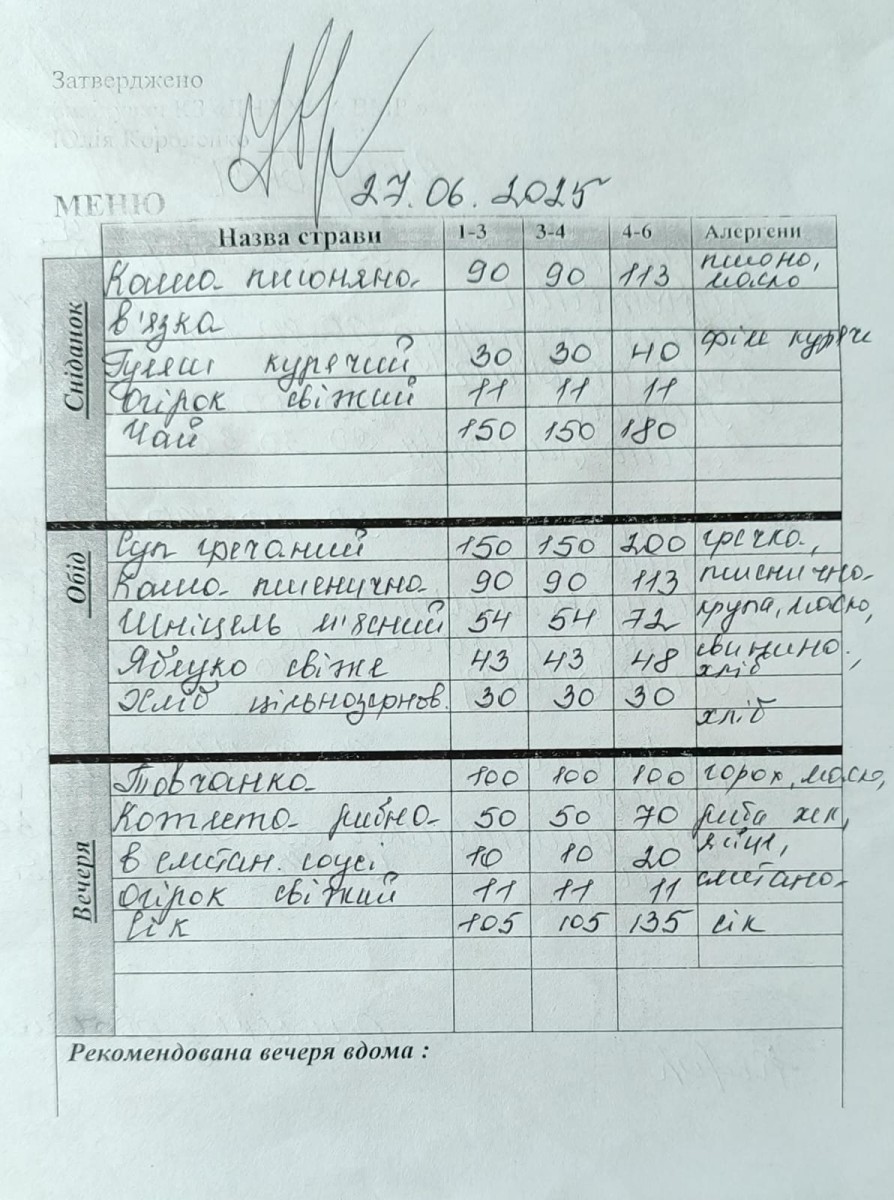 Затверджено
Юлія Короленко
27.06.2025
МЕНЮ
Назва страви 1-3 3-4 4-6 Алергени
Сніданок
Каша пшоняна 90 90 113 пшоно, масло
в'язка
Гуляш курячий 30 30 40 філе куряче
Огірок свіжий 11 11 11
Чай 150 150 180
Обід
Суп гречаний 150 150 200 гречка,
Каша пшенична 90 90 113 пшенична
Шніцель м'ясний 54 54 72 крупа, масло,
Яблуко свіже 43 43 48 свинина, хліб
Хліб цільнозернов. 30 30 30 хліб
Вечеря
Товчанка 100 100 100 горох, масло,
Котлета рибна 50 50 70 риба хек,
в сметан. соусі 10 10 20 яйце,
Огірок свіжий 11 11 11 сметана
Сік 105 105 135 сік
Рекомендована вечеря вдома :